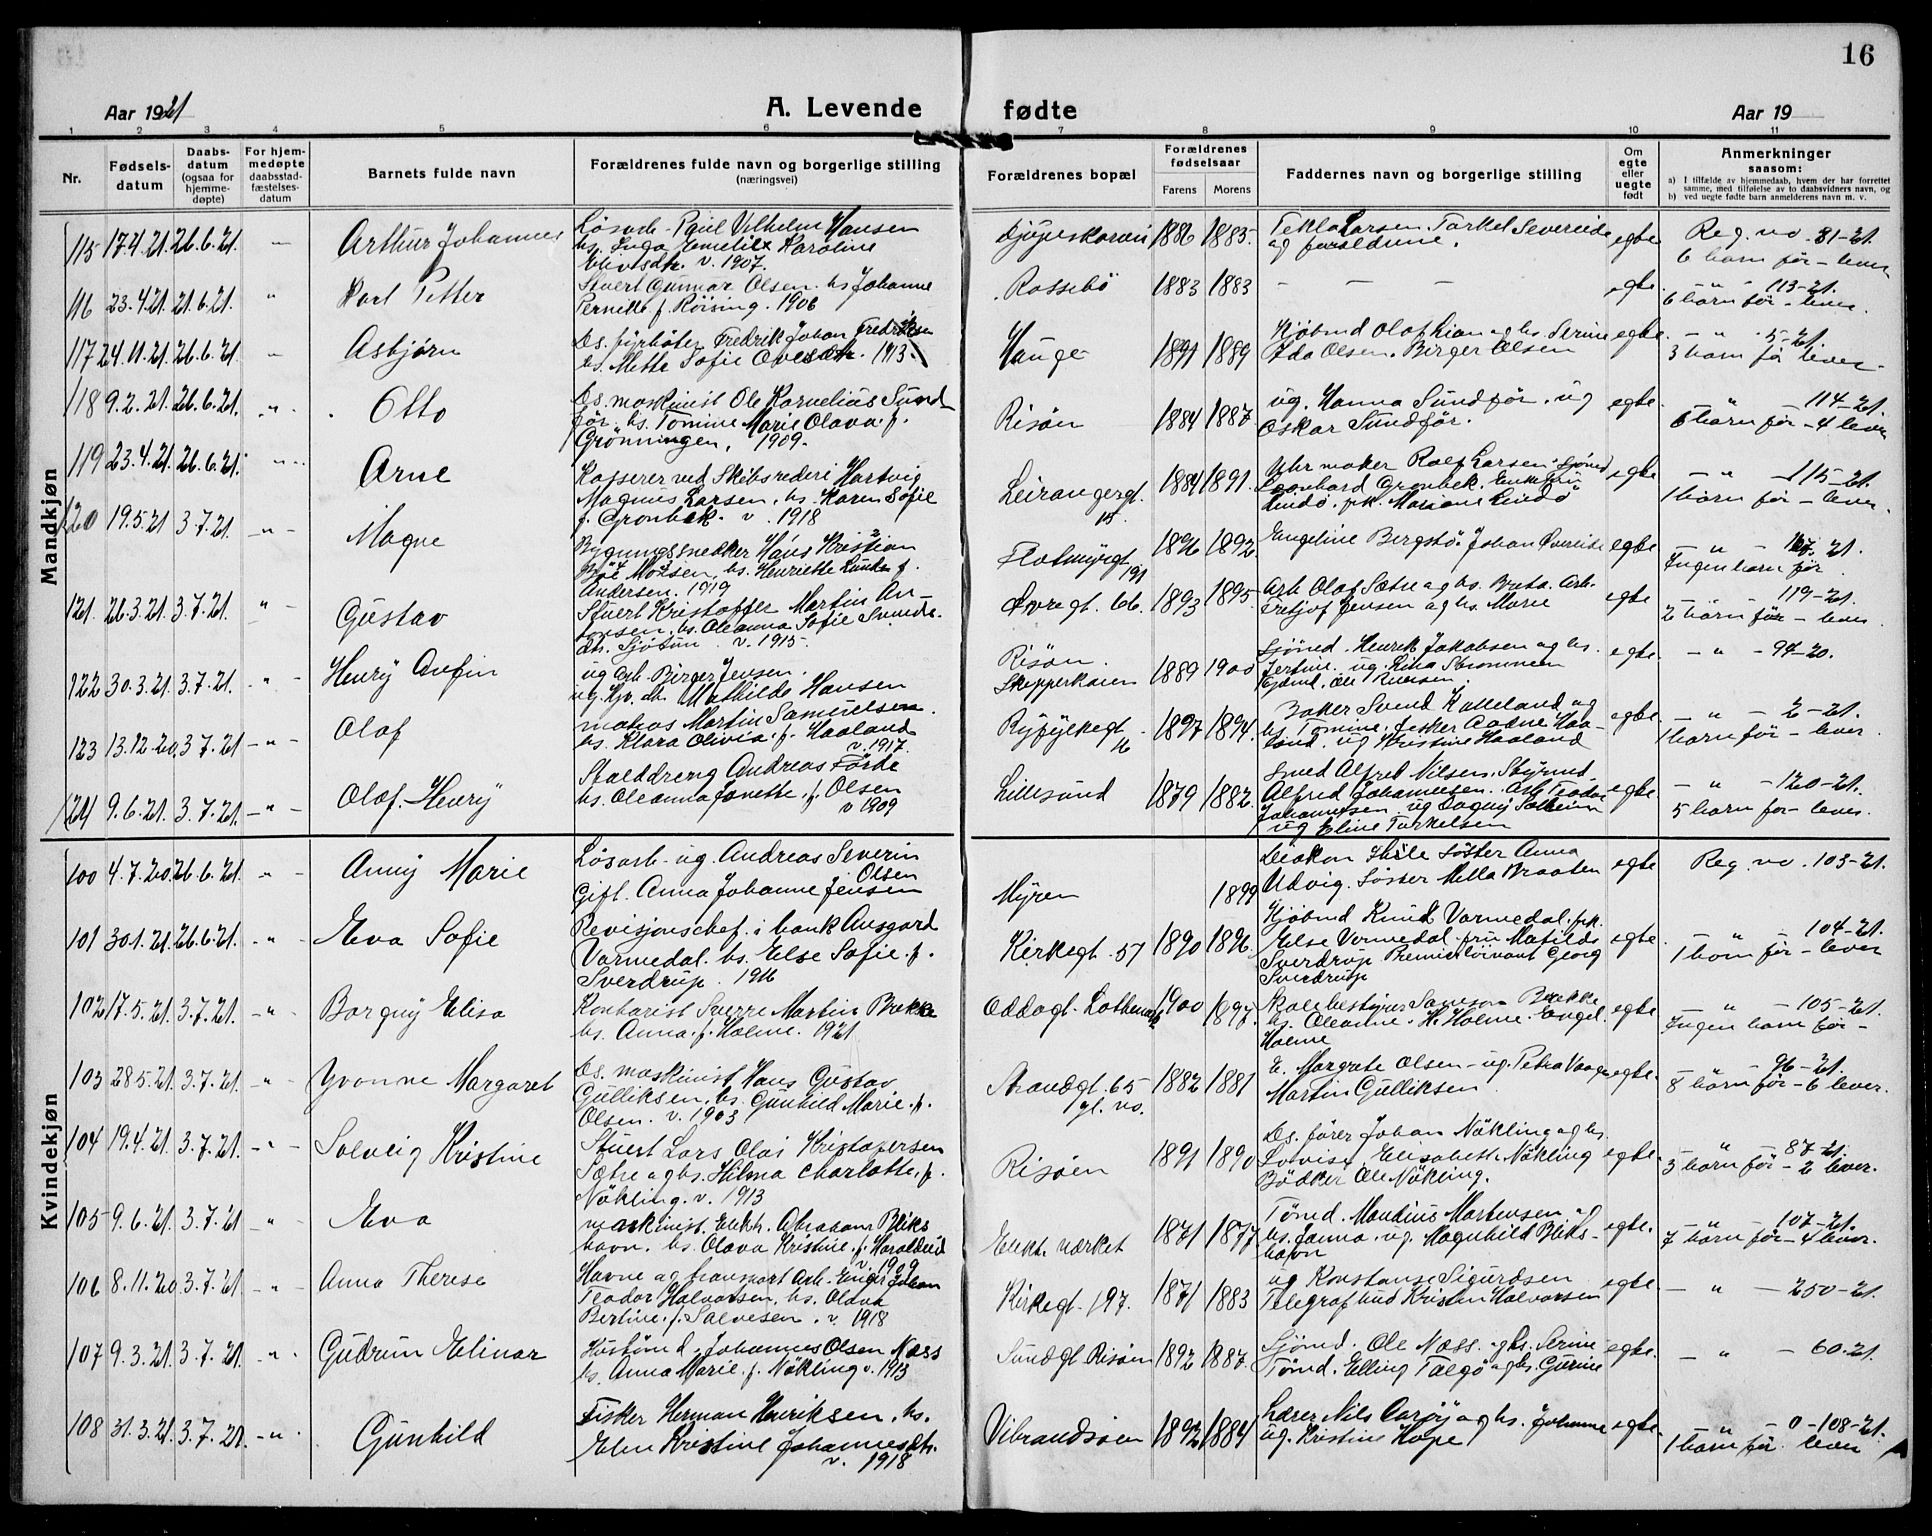 16
Aar 1921
A. Levende fødte
Aar 19
1 2 3 4 5 6 7 8 9 10 11
Nr.
Fødsels-
datum
Daabs-
datum
(ogsaa for
hjemme-
døpte)
For hjem-
medøpte
daabsstad-
fæstelses-
datum
Barnets fulde navn
Forældrenes fulde navn og borgerlige stilling
(næringsvei)
Forældrenes bopæl
Forældrenes
fødselsaar
Farens Morens
Faddernes navn og borgerlige stilling
Om
egte
eller
uegte
født
Anmerkninger
saasom:
a) I tilfælde av hjemmedaab, hvem der har forrettet
samme, med tilføielse av to daabsvidners navn, og
b) ved uegte fødte barn anmelderens navn m. v.
Mandkjøn
115 17.4.21. 26.6.21. Arthur Johannes
Løsarb. Paul Vilhelm Hansen
hs. Inga Emelie Karoline
v. 1907.
1886 1883. Tekla Larsen. Torkel Severeide
og forældrene.
egte Reg. no. 81-21.
6 barn før - lever
116 23.4.21 21.6.21. " Karl Petter
Stuert Gunnar Olsen. hs Johanne
Pernille f. Röising. 1906
Rossebö 1883 1883 - - - egte. - " - 113-21.
6 barn før - lever.
117 24.11.21. 26.6.21 " Asbjørn
Ds. fyrbøter Fredrik Johan Fredriksen
hs. Mette Sofie 1913.
Hauge 1891 1889 Kjøbmd Olaf Lian og hs. Serine
Ida Olsen. Birger Olsen
egte. - " - 5-21.
3 barn før lever.
118 9.2.21. 26.6.21. " Otto
Ds. maskinist Ole Kornelius Sund-
før. hs. Tomine Marie Olava. f.
Grönningen. 1909.
Risøen 1884 1887 ug. Hanna Sundfør. ug
Oskar Sundfør.
egte. - 114-21.
6 barn før - 4 lever
119 23.4.21. 26.6.21. " Arne
Kasserer ved Skibsrederi Hartvig
Magnus Larsen. hs. Karen Sofie
f. Gronbek. v. 1918
Leirangergt.
15.
1884 1891. Uhrmaker Rolf Larsen. Sjömd
Leonhard Gronbek. Enkefru
Lindø. frk. Mariane Lindø
egte - " - 115-21.
1 barn før - lever.
120 19.5.21 3.7.21. " Magne
Bygningssnedker Hans Kristian
hs. Henriette f.
Andersen. 1919
Flotmyrgt.
191
1896 1892 Engeline Bergstø. Johan
egte - " - 21.
Ingen barn før
121. 26.3.21. 3.7.21. " Gustav
Stuert Kristoffer Martin An-
tonsen. hs. Oleanna Sofie
v. 1915.
Øvregt. 66. 1893 1895. Arb. Olaf Sætre og hs. Berta. Arb.
Jensen og hs. Marie
egte - 119-21.
2 barn før - lever.
122 30.3.21. 3.7.21. " Henry Arfin
ug. arb. Birger Jensen.
ug. Mathilde Hansen
Risøen.
Skipperkaien
1889 1900 Sjömd. Henrik Jakobsen og hs.
ug. Lina Strommen
egte. - " - 94-20.
123 13.12.20. 3.7.21 - " - Olaf
matros Martin Samuelsen.
hs. Klara Olivia. f. Haaland
v. 1917.
Ryfylkegt.
16
1897 1894. Baker Svend Kalleland og
hs. Tomine. fisker Aadne Haa-
land. ug Kristine Haaland
egte. - " - 2-21.
1 barn før - lever.
124 9.6.21. 3.7.21. - " - Olaf Henry
Stalddreng Andreas Førde
hs. Oleanna Jonette. f. Olsen
v 1909
Lillesund 1879 1882. Smed Alfred Nilsen. Styrmd
Alfred Johannesen. Arb. Teodor
Johannesen. ug Dagny Solheim
ug Eline Torkelsen
egte. - " - 120-21.
5 barn før - lever.
Kvindekjøn
100 4.7.20. 26.6.21. " Anny Marie
Løsarb. ug. Andreas Severin
Olsen
Gift. Anna Johanne Jensen
Myren 1899 Diakon Søster Anna
Udvig. Søster Milla Braaten
egte Reg. no. 103-21.
101 30.1.21. 26.6.21. - " - Eva Sofie
Revisjonschef. i bank Ansgard
Vormedal. hs. Else Sofie. f.
Sverdrup. 1916
Kirkegt. 57 1890 1896. Kjøbmd Knud Vormedal. frk.
Else Vormedal. fru Matilde
Sverdrup Premierløitnant Georg
Sverdrup
egte. - " - 104-21.
1 barn før - lever
102 17.5.21. 3.7.21. - " - Borgny Elisa
Kontorist Sverre Martin Bekke
hs. Anna. f. Holme. 1921
Oddagt. 1900 1897. Skolebestyrer Samson Bekke
hs. Oleanne. H. Holme. Engel.
Holme
egte. - " - 105-21.
Ingen barn før -
103 28.5.21. 3.7.21. " Yvonne Margaret
Ds. maskinist Hans Gustav
Gulliksen. hs. Gunhild Marie. f.
Olsen. v. 1903
Strandgt. 65
gl. no.
1882 1881 E. Margrete Olsen - ug. Petra Vaage
Martin Gulliksen.
egte. - 96-21.
8 barn før - 6 lever.
104 19.4.21. 3.7.21. " Solveig Kristine
Stuert Lars Olai Kristofersen
Sætre og hs. Hilma Charlotte. f.
Nökling. v. 1913
Risøen 1891 1890 Ds. fører Johan Nökling og hs.
Lovise. Elisabeth Nökling
Bödker Ole Nökling.
egte. " - 87-21.
3 barn før - 2 lever.
105 9.6.21. 3.7.21 " Eva
maskinist. Elekt. Abraham Bliks-
havn. hs. Olava Kristine. f. Haraldseid
v. 1909
Elekt. værket 1871 1877 Tömd. Maudius Martensen og
hs. Janna. ug. Magnhild Bliks-
havn
egte. " - 107-21.
7 barn før - 4 lever.
106 8.11.20. 3.7.21. - " - Anna Therese
Havne og transport Arb. Johan
Teodor Halvorsen. hs. Olava
Bertine. f. Salvesen. v. 1918
Kirkegt. 197. 1871 1883 ug Konstanse Sigurdsen
Telegrafbud Kristen Halvorsen
egte. - " - 250-21.
107 9.3.21. 3.7.21. " Gudrun Elinar
Johannes Olsen Næss
hs. Anna Marie. f. Nökling v. 1913
Sundgt. Risøen 1892 1887. Sjömd. Ole Næss. og hs. Serine
Tömd. Elling Talgö og hs. Gurine
egte. - " - 60-21.
108 31.3.21. 3.7.21. - " - Gunhild
Fisker Herman Henriksen. hs.
Elen Kristine Johannesdtr.
v. 1918
Vibrandsøen 1892 1884 Lærer Nils Carøy og hs. Johanne
ug. Kristine Hope
egte. - " - 0-108-21.
1 barn før. lever